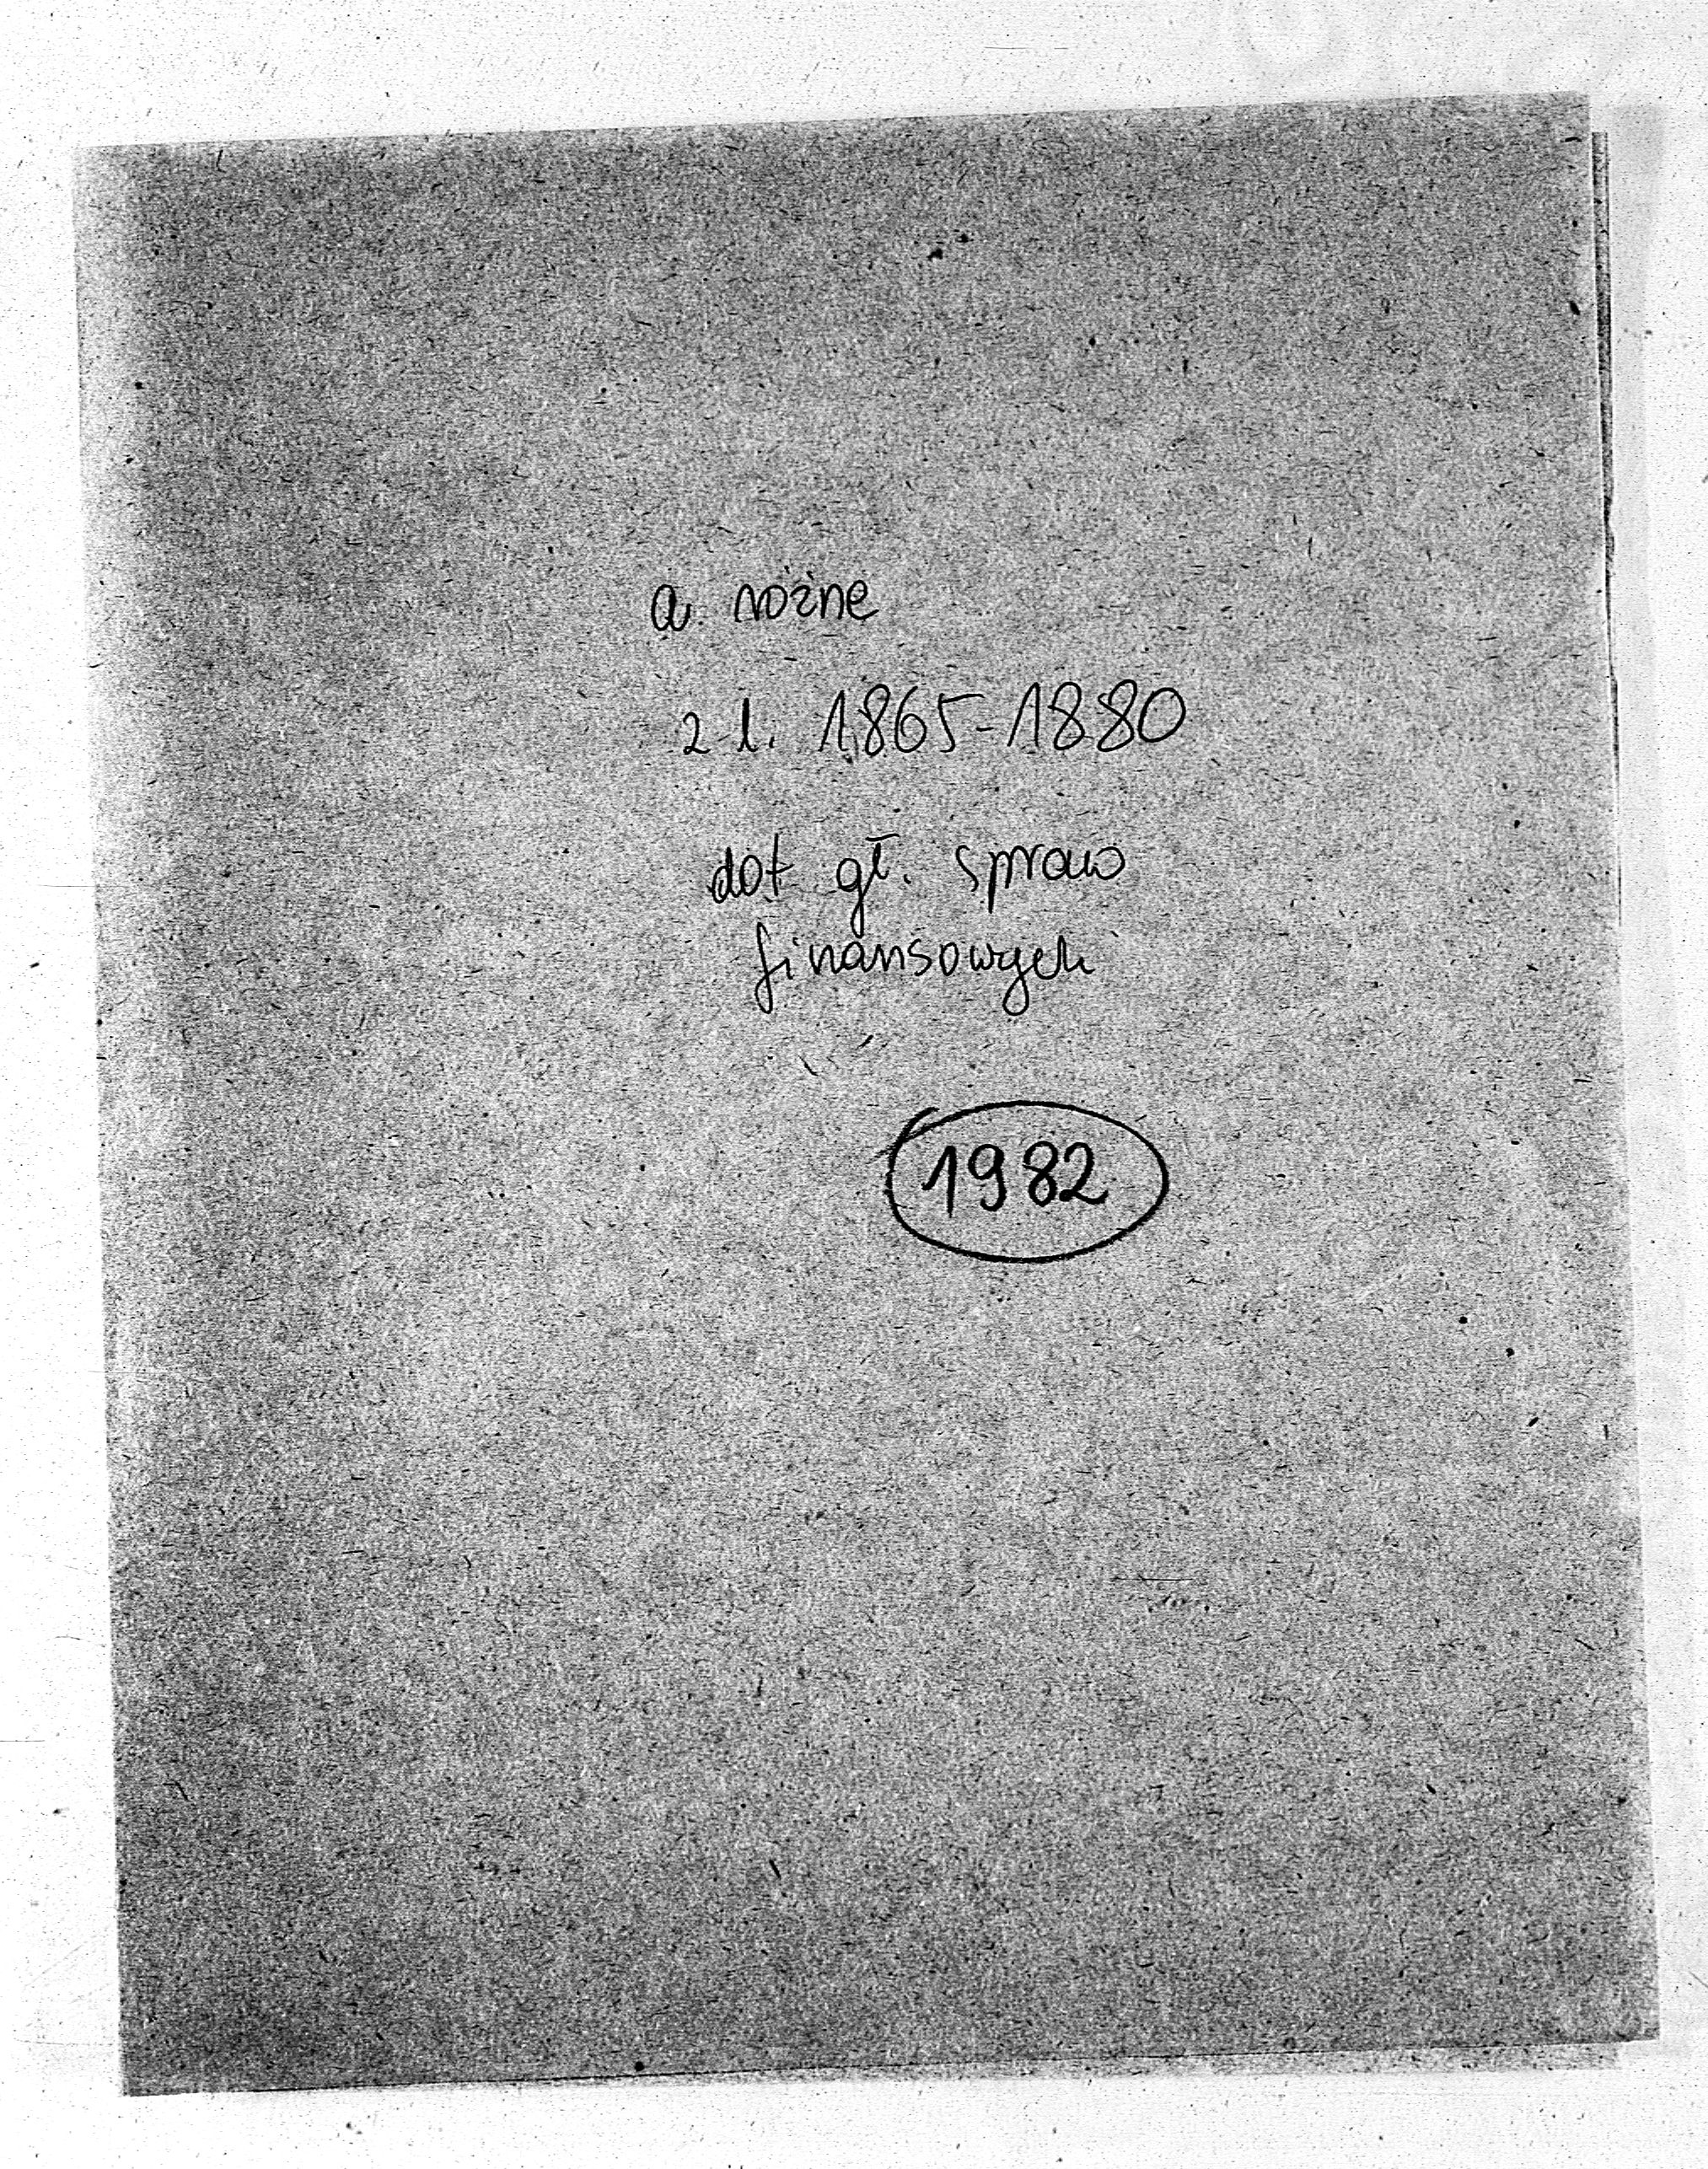 a. różne
z l. 1865-1880
dot gł. spraw
finansowych
1982